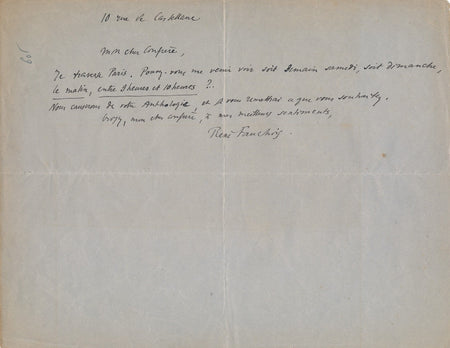 10 rue de Castellane
60f
Mon cher Confrère,
Je traverse Paris. Pouvez-vous me venir voir soit demain samedi, soit dimanche,
le matin, entre 9 heures et 10 heures ?
Nous causerons de votre Anthologie, et je vous remettrai ce que vous souhaitez.
Croyez, mon cher confrère, à mes meilleurs sentiments,
René Fauchois.